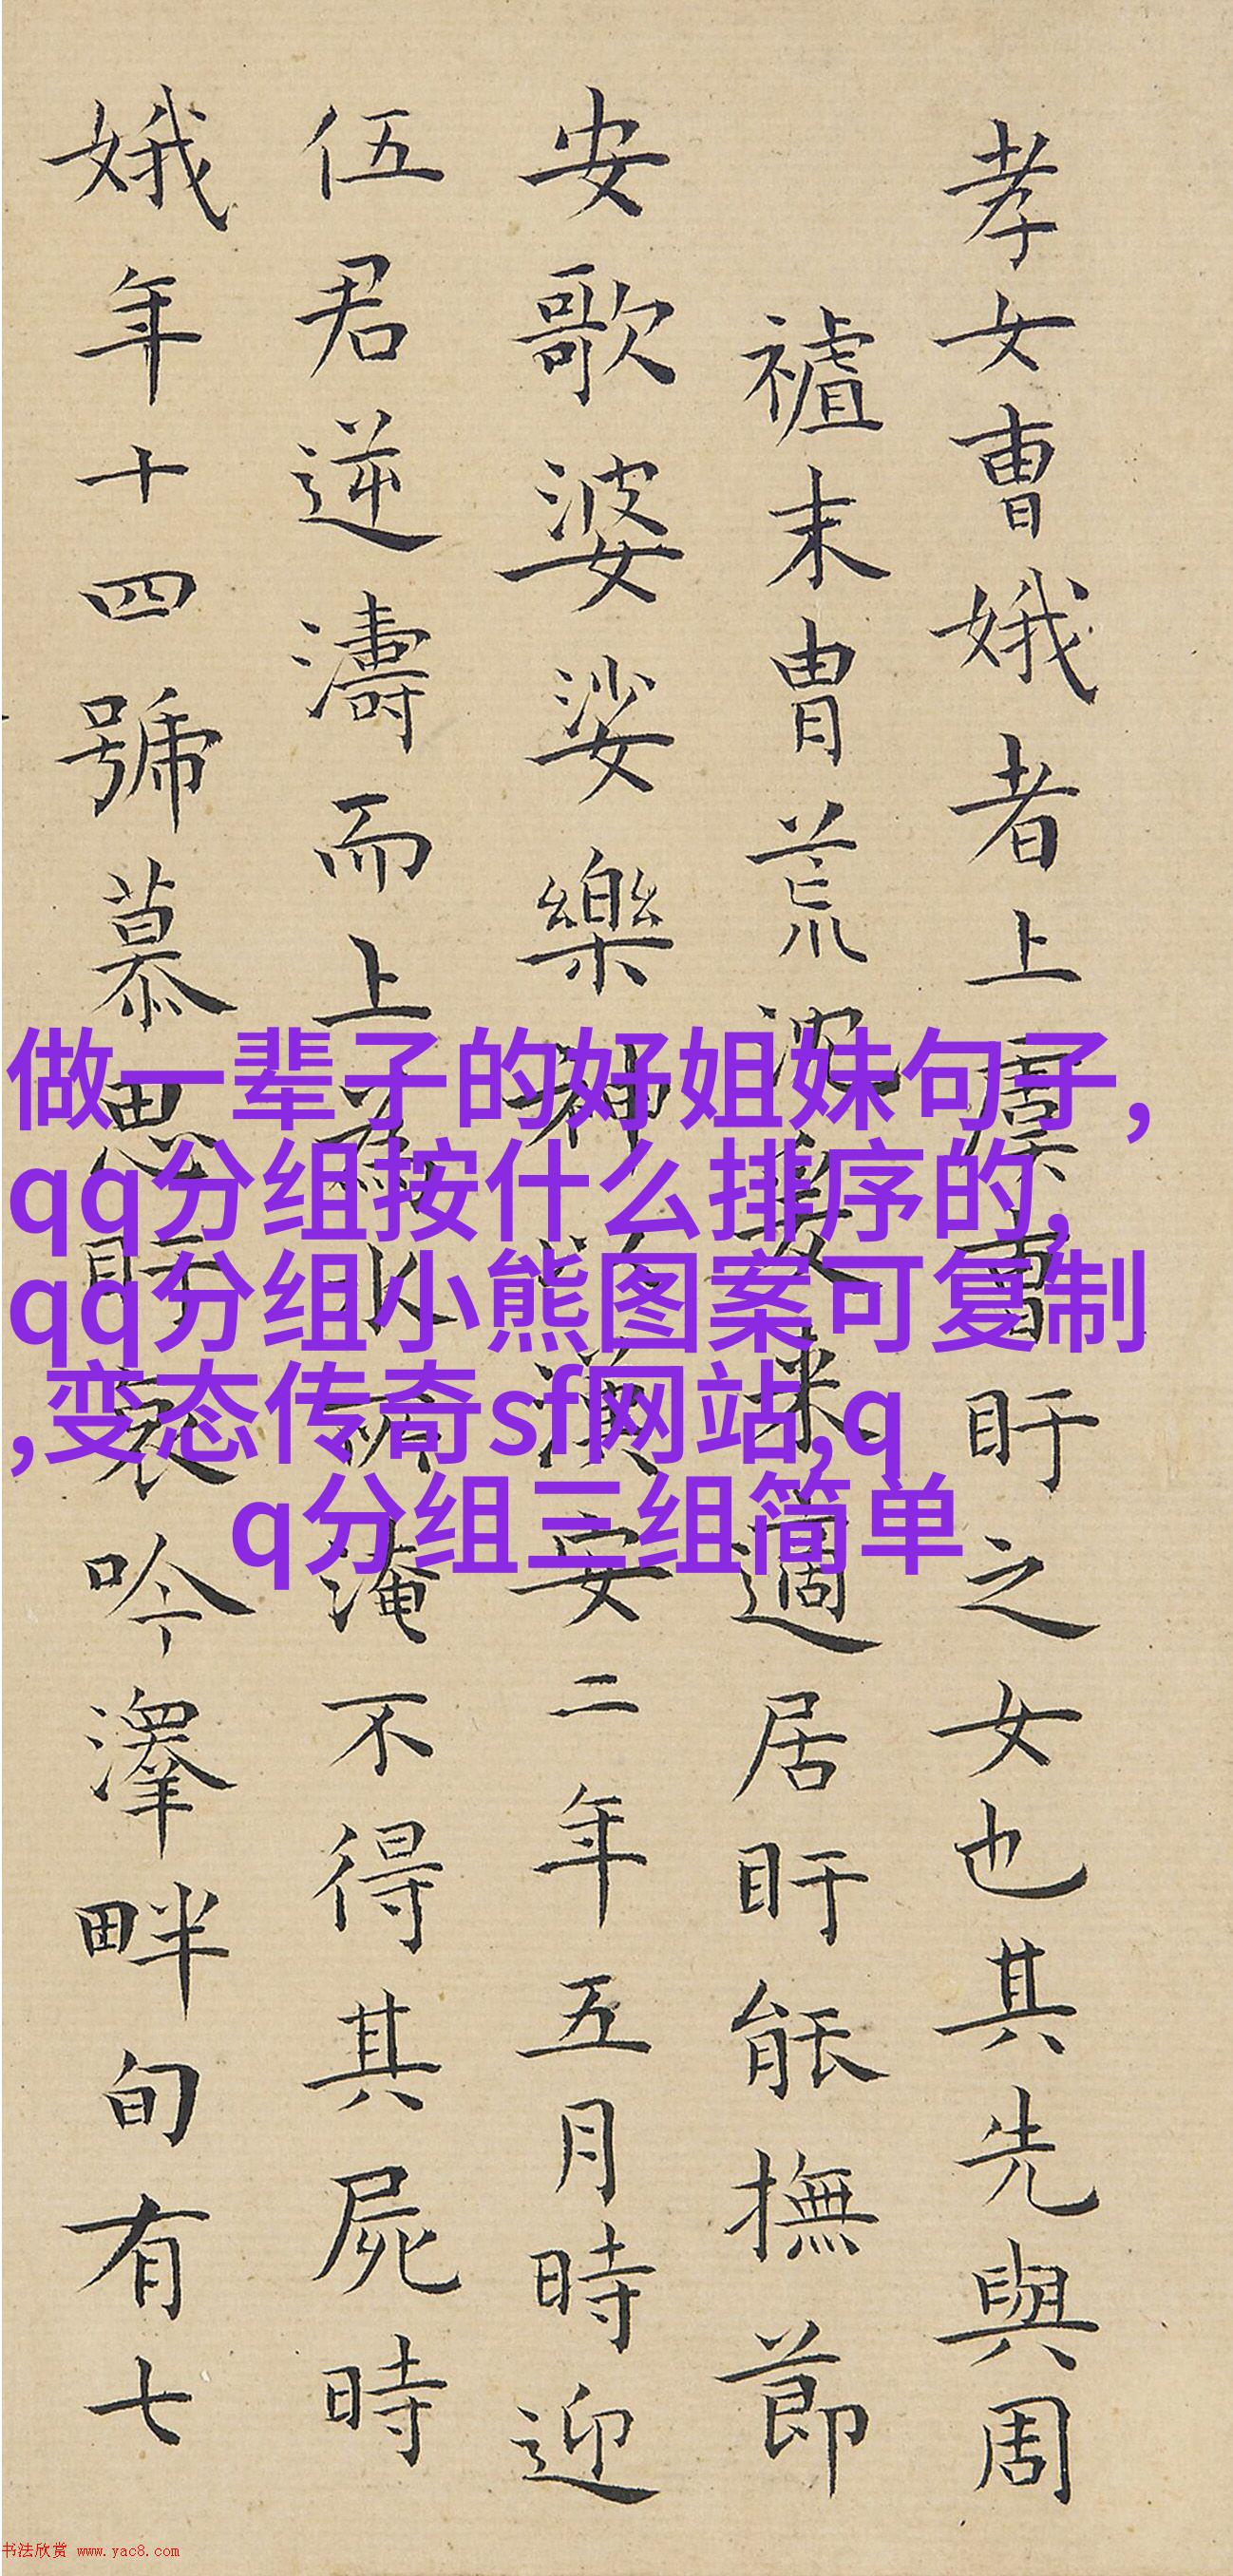 孝女曹娥者上虞曹盱之女也其先與周
禇末胄荒沈爰来適居盱能撫節
安歌婆娑樂神漢安二年五月時迎
伍君逆濤而上為水所淹不得其屍時
娥年十四號慕思盱哀吟澤畔旬有七
做一辈子的好姐妹句子,
qq分组按什么排序的,
qq分组小熊图案可复制
,变态传奇sf网站,q
q分组三组简单
书法欣赏 www.yac8.com